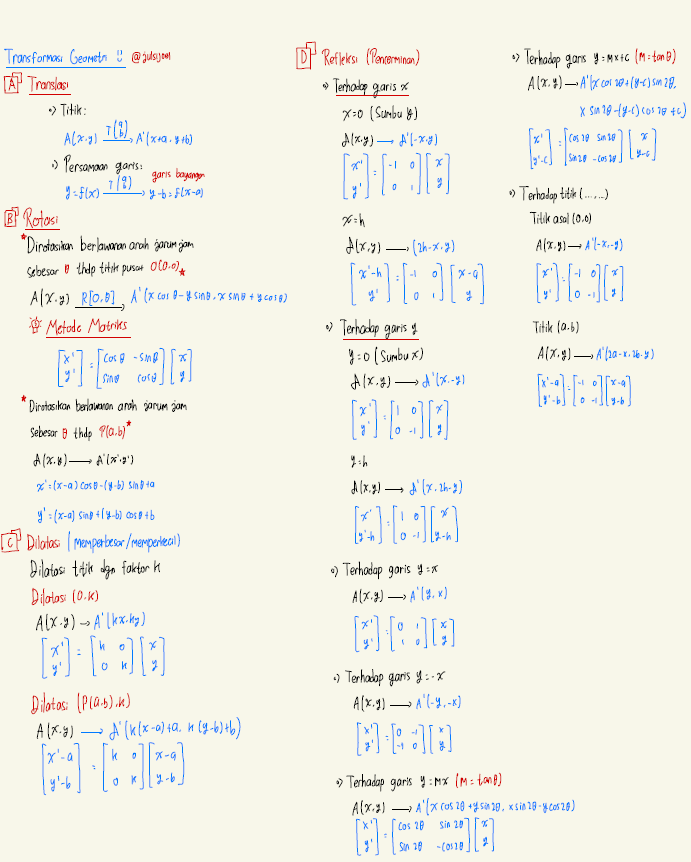 Transformasi Geometri !! @julsijoel
A Translasi
•) Titik:
A(x,y) T(a b) → A'(x+a, y+b)
•) Persamaan garis:
garis bayangan
y=f(x) T(a b) → y-b=f(x-a)
B Rotasi
*Dirotasikan berlawanan arah jarum jam
sebesar θ thdp titik pusat O(0,0)*
A(x,y) R[O,θ] → A'(x cos θ - y sin θ, x sin θ + y cos θ)
Metode Matriks
[x' y'] = [cos θ -sin θ sin θ cos θ] [x y]
*Dirotasikan berlawanan arah jarum jam
Sebesar θ thdp P(a,b)*
A(x,y) → A'(x',y')
x' = (x-a) cos θ - (y-b) sin θ + a
y' = (x-a) sin θ + (y-b) cos θ + b
C Dilatasi (memperbesar/memperkecil)
Dilatasi titik dgn faktor k
Dilatasi (O,k)
A(x,y) → A'(kx,ky)
[x' y'] = [k 0 0 k] [x y]
Dilatasi (P(a,b),k)
A(x,y) → A'(k(x-a)+a, k(y-b)+b)
[x'-a y'-b] = [k 0 0 k] [x-a y-b]
D Refleksi (Pencerminan)
•) Terhadap garis x
x=0 (Sumbu y)
A(x,y) → A'(-x,y)
[x' y'] = [-1 0 0 1] [x y]
x=h
A(x,y) → (2h-x, y)
[x'-h y'] = [-1 0 0 1] [x-a y]
•) Terhadap garis y
y=0 (Sumbu x)
A(x,y) → A'(x,-y)
[x' y'] = [1 0 0 -1] [x y]
y=h
A(x,y) → A'(x, 2h-y)
[x' y'-h] = [1 0 0 -1] [x y-h]
•) Terhadap garis y=x
A(x,y) → A'(y,x)
[x' y'] = [0 1 1 0] [x y]
•) Terhadap garis y=-x
A(x,y) → A'(-y,-x)
[x' y'] = [0 -1 -1 0] [x y]
•) Terhadap garis y=Mx (M=tan θ)
A(x,y) → A'(x cos 2θ + y sin 2θ, x sin 2θ - y cos 2θ)
[x' y'] = [cos 2θ sin 2θ sin 2θ -cos 2θ] [x y]
•) Terhadap garis y=Mx+c (M=tan θ)
A(x,y) → A'(x cos 2θ + (y-c) sin 2θ,
x sin 2θ - (y-c) cos 2θ + c)
[x' y'-c] = [cos 2θ sin 2θ sin 2θ -cos 2θ] [x y-c]
•) Terhadap titik (...,...)
Titik asal (0,0)
A(x,y) → A'(-x,-y)
[x' y'] = [-1 0 0 -1] [x y]
Titik (a,b)
A(x,y) → A'(2a-x, 2b-y)
[x'-a y'-b] = [-1 0 0 -1] [x-a y-b]